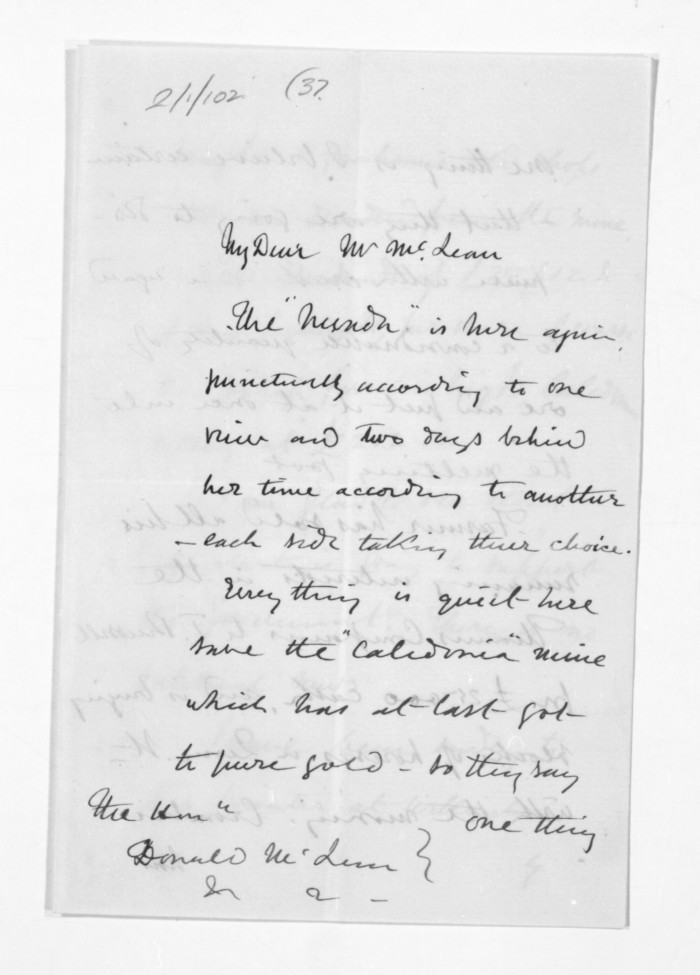 2/1/102 (37.
My Dear Mr McLean
The "Nevada" is here again,
punctually according to one
view and two days behind
her time according to another
- each side taking their choice.
Every thing is quiet here
save the "Caledonia" mine
which has at last got
to pure gold - so they say
one thing
The Honble
Donald McLean }